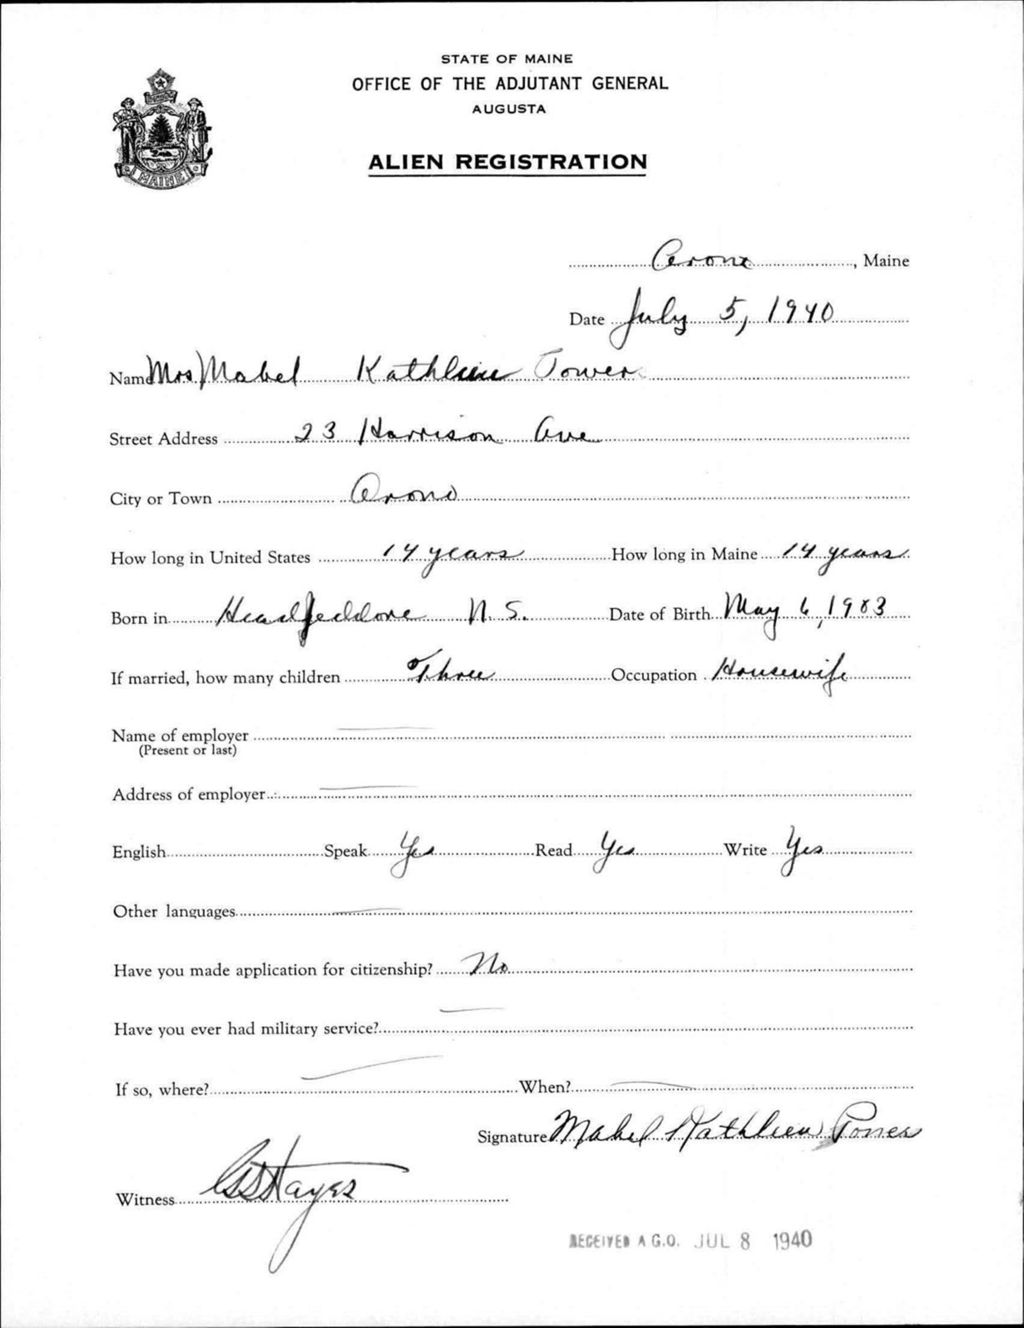 STATE OF MAINE
OFFICE OF THE ADJUTANT GENERAL
AUGUSTA
ALIEN REGISTRATION
MAINE
Orono, Maine
Date July 5, 1940
Name Mrs Mabel Kathleen
Street Address 23 Harrison Ave
City or Town Orono
How long in United States 14 years How long in Maine 14 years
Born in N.S. Date of Birth May 6, 1903
If married, how many children Three Occupation Housewife
Name of employer
(Present or last)
Address of employer
English Speak Yes Read Yes Write Yes
Other languages
Have you made application for citizenship? No
Have you ever had military service?
If so, where? When?
Signature Mabel Kathleen
Witness Hayes
RECEIVED A.G.O. JUL 8 1940